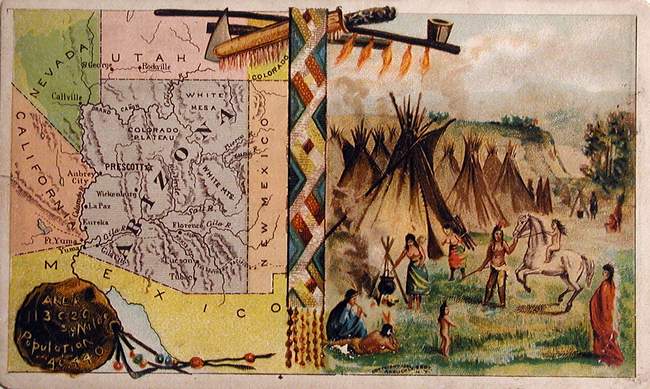 NEVADA
UTAH
St George
Rockville
COLORADO
Callville
GRAND CAÑON
WHITE
MESA
COLORADO
PLATEAU
CALIFORNIA
PRESCOTT
ARIZONA
Aubrey
City
WHITE MTS.
Wickenburg
La Paz
Eureka
Salt R.
Florence
Gila R.
NEW MEXICO
Ft. Yuma
Yuma
Gila R.
Tucson
Tubac
MEXICO
AREA
113,020
Sq Miles
Population
40,440
N.Y.